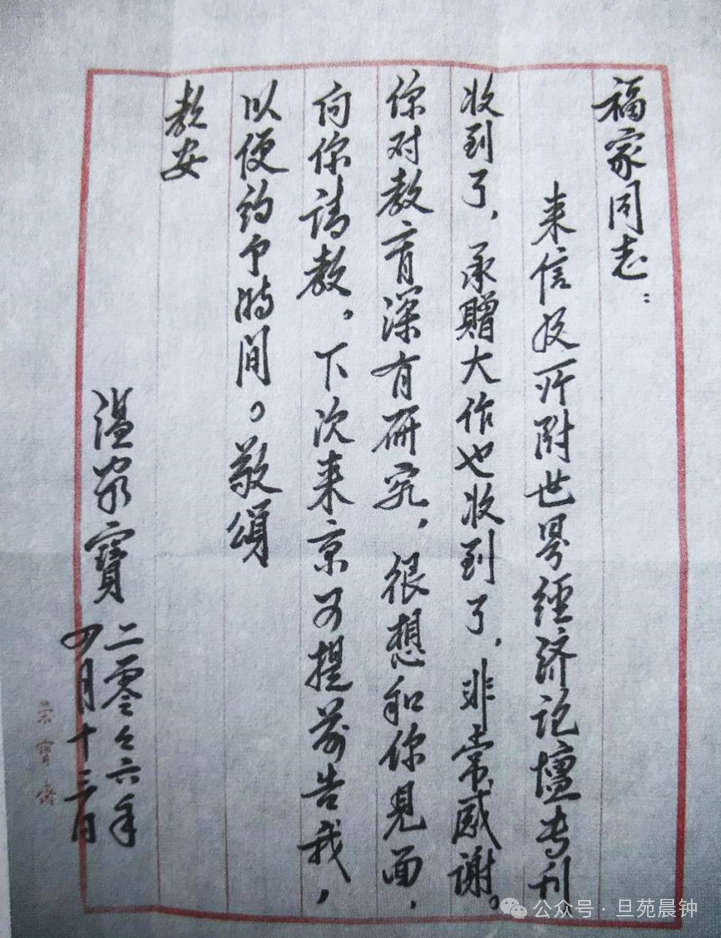 福家同志：
来信及所附世界经济论坛专刊
收到了，承赠大作也收到了，非常感谢。
你对教育深有研究，很想和你见面，
向你请教。下次来京可提前告我，
以便约个时间。敬颂
教安
温家寶
二零零六年
四月十三日
荣宝斋
公众号·旦苑晨钟